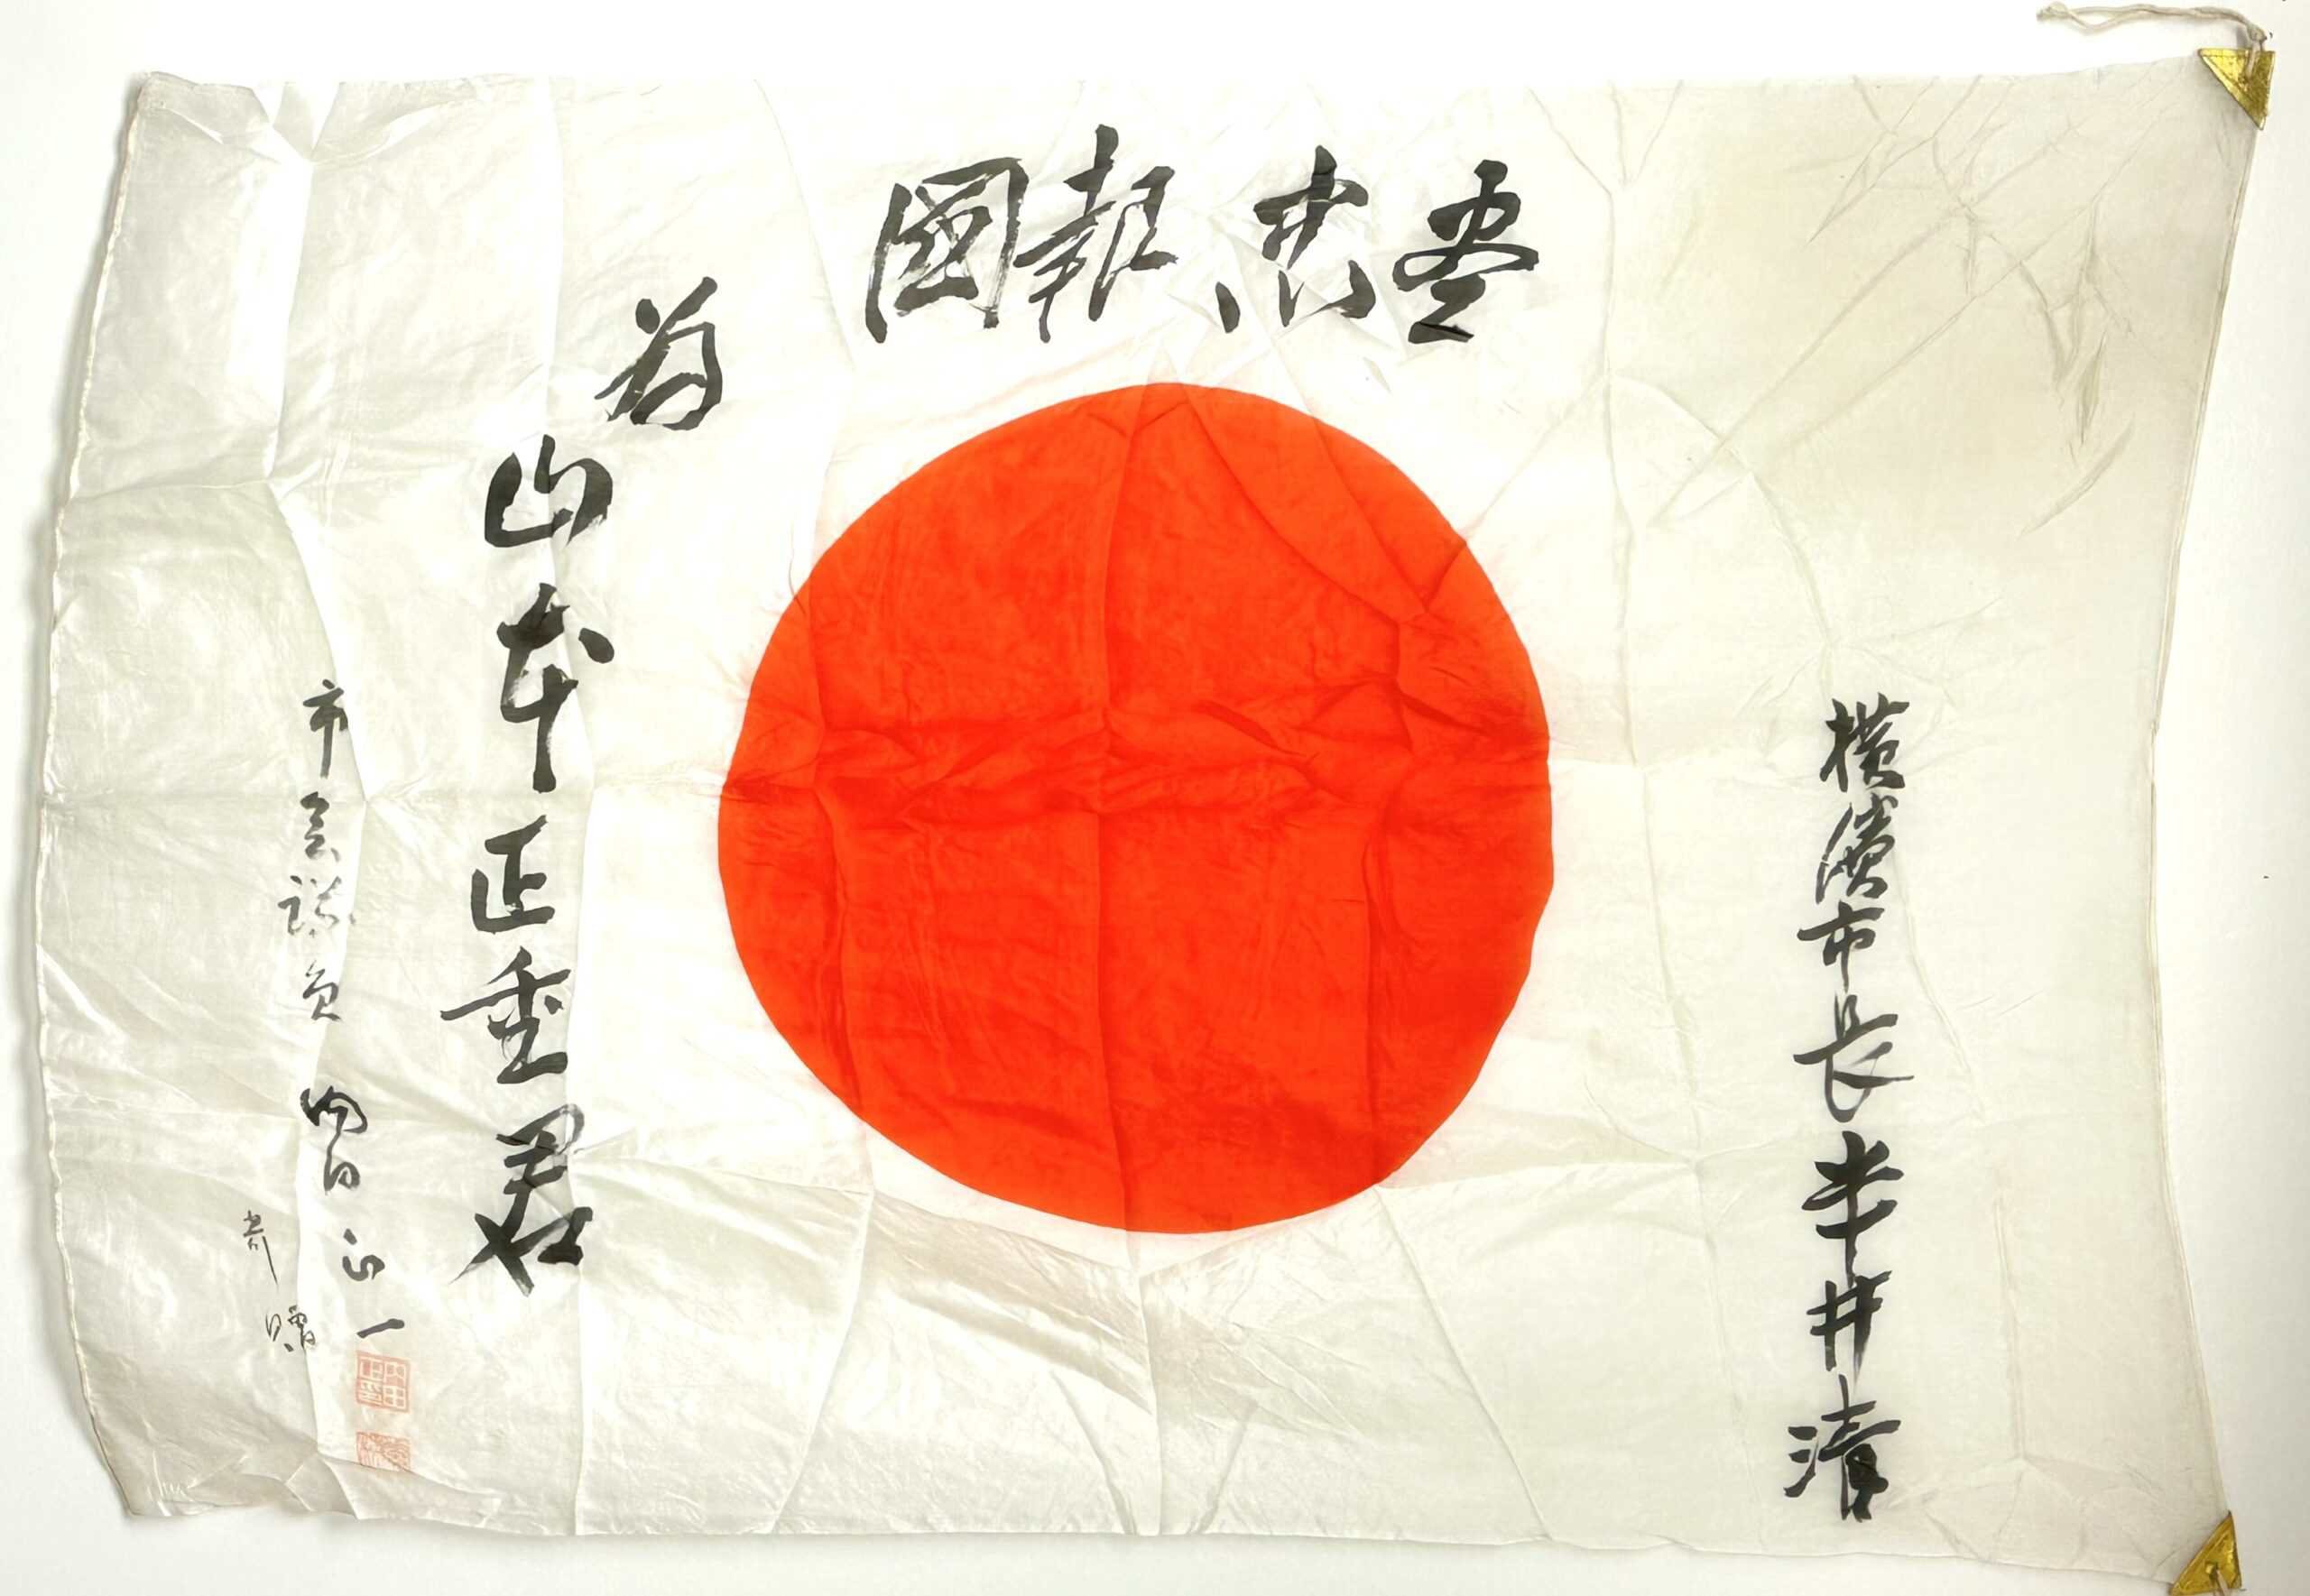 盡忠報國
横濱市長半井清
為
山本正重君
市会議員 内田正一
寄贈